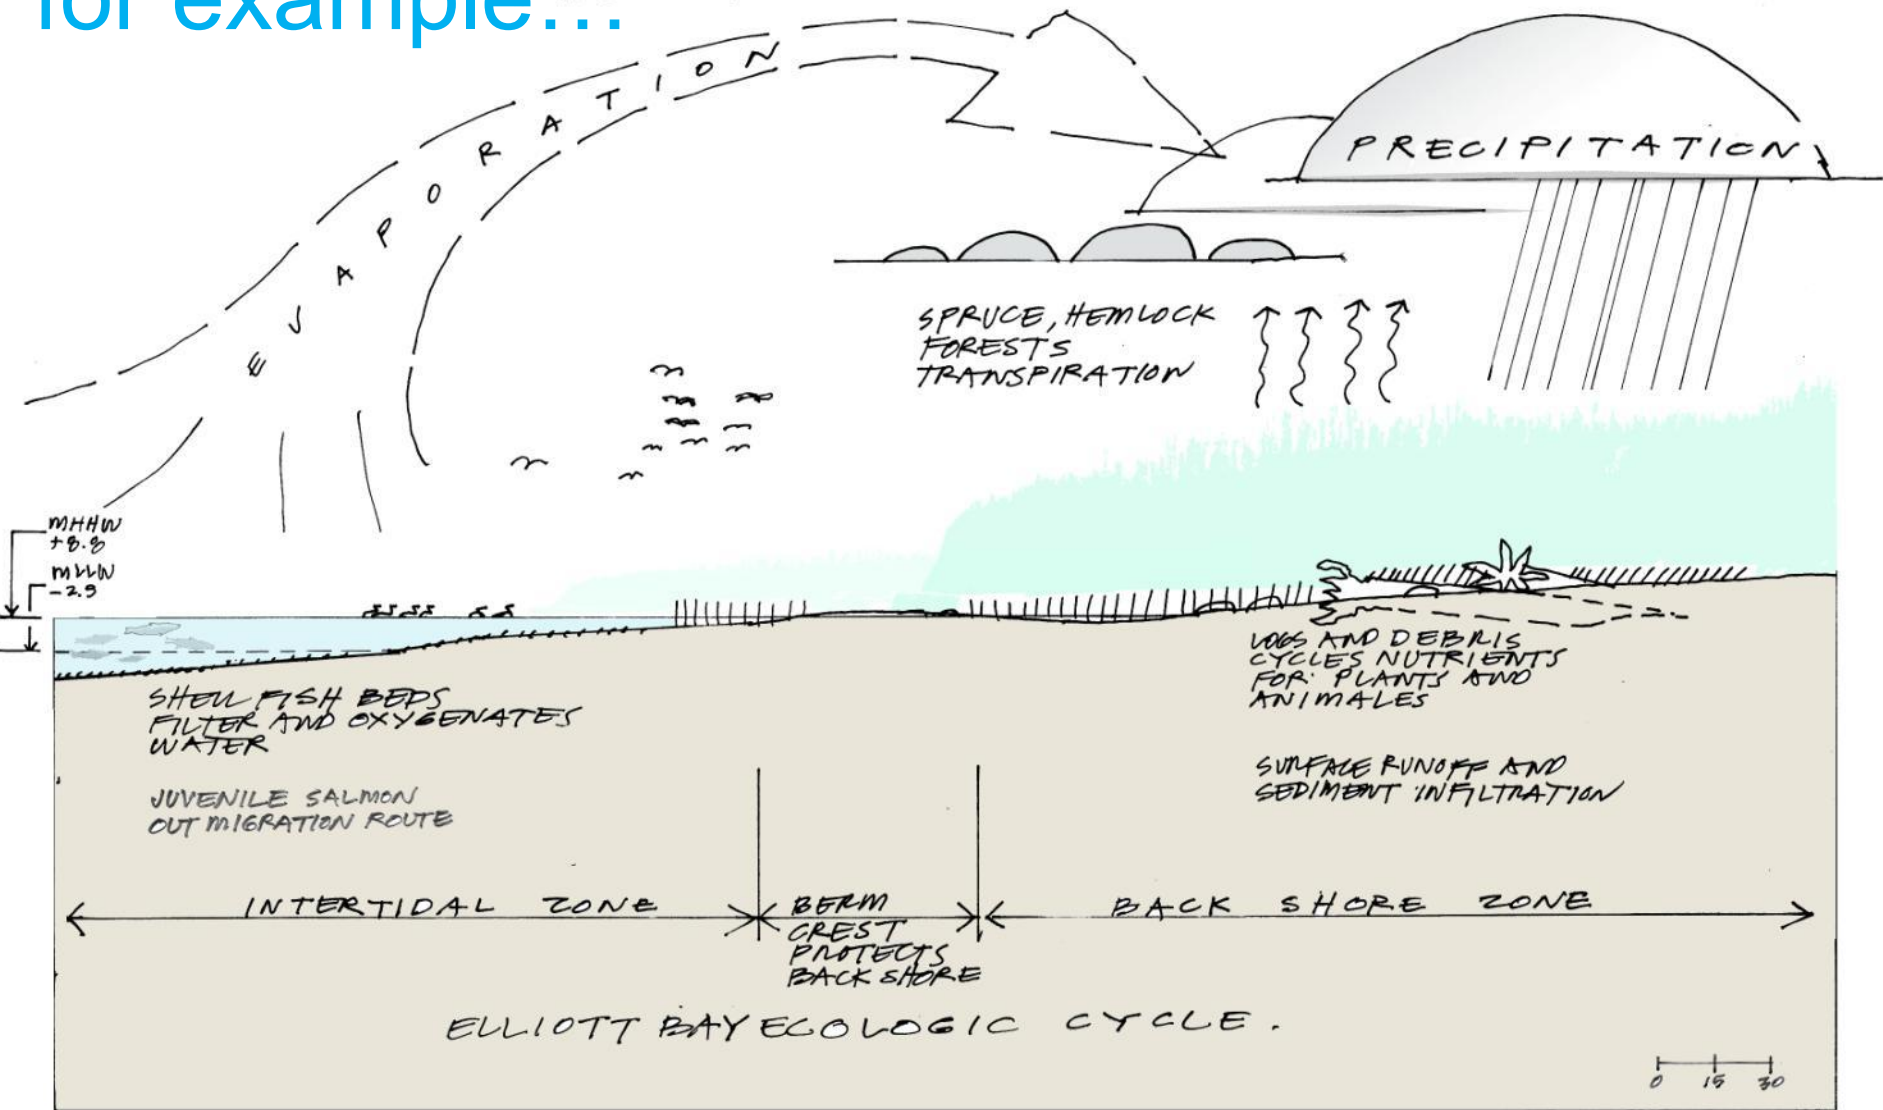 for example...
EVAPORATION
PRECIPITATION
SPRUCE, HEMLOCK
FORESTS
TRANSPIRATION
MHHW
+8.8
MLLW
-2.9
SHELL FISH BEDS
FILTER AND OXYGENATES
WATER
JUVENILE SALMON
OUT MIGRATION ROUTE
LOGS AND DEBRIS
CYCLES NUTRIENTS
FOR PLANTS AND
ANIMALES
SURFACE RUNOFF AND
SEDIMENT INFILTRATION
INTERTIDAL ZONE
BERM
CREST
PROTECTS
BACK SHORE
BACK SHORE ZONE
ELLIOTT BAY ECOLOGIC CYCLE.
0 15 30